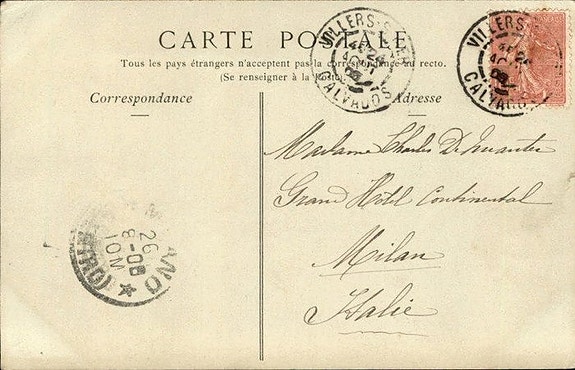 CARTE POSTALE
Tous les pays étrangers n'acceptent pas la correspondance au recto.
(Se renseigner à la Poste).
Correspondance
Adresse
VILLERS-S-MER
CALVADOS
VILLERS
CALVADOS
Madame Charles
Grand Hôtel Continental
Milan
Italie
26
8-08
10M